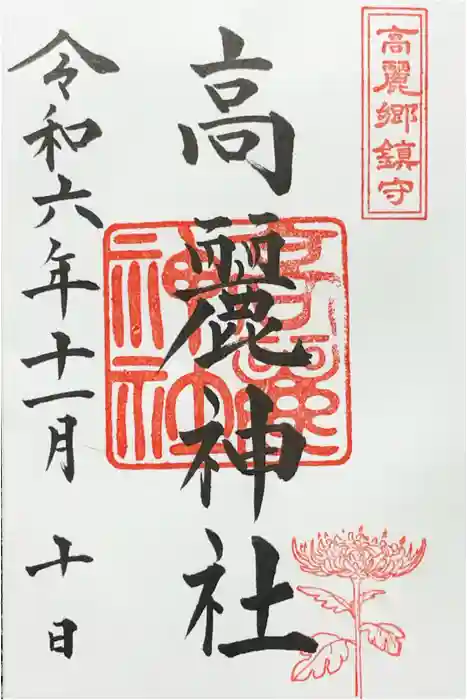 高麗郷鎮守
高麗神社
令和六年十一月 十日
高麗
神社